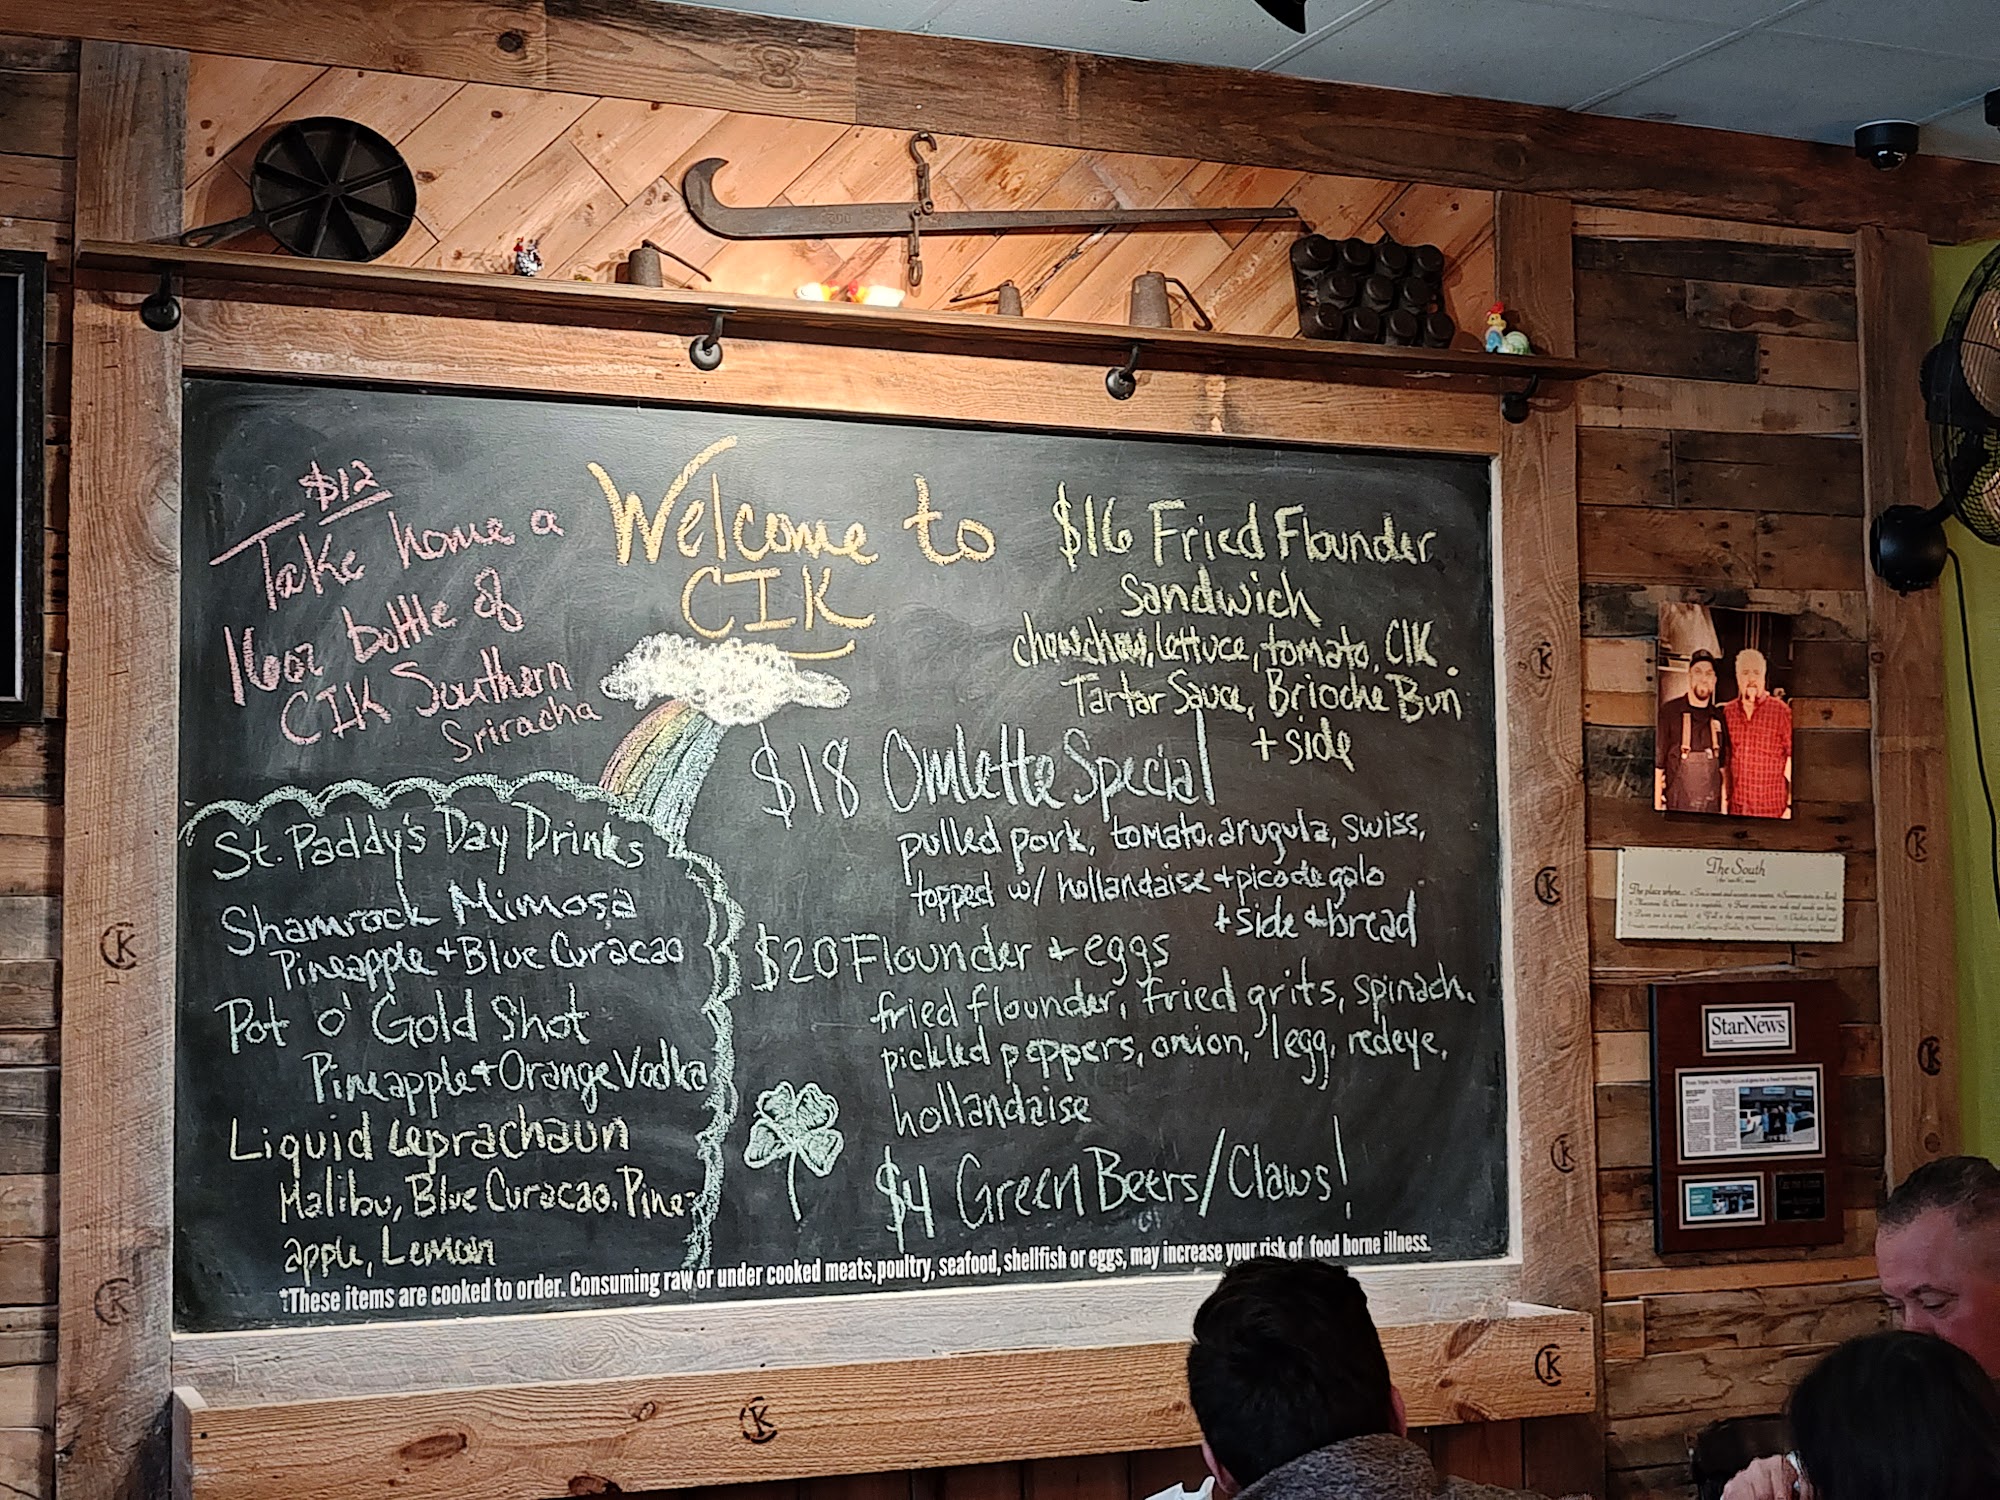 $12
Take home a
16oz bottle of
CIK Southern
Sriracha
Welcome to
CIK
$16 Fried Flounder
Sandwich
chowchow, lettuce, tomato, CIK
Tartar Sauce, Brioche Bun
+ side
$18 Omlette Special
pulled pork, tomato, arugula, swiss,
topped w/ hollandaise + pico de galo
+ side + bread
$20 Flounder + eggs
fried flounder, fried grits, spinach,
pickled peppers, onion, 1egg, redeye,
hollandaise
$4 Green Beers/Claws!
St. Paddy's Day Drinks
Shamrock Mimosa
Pineapple + Blue Curacao
Pot o' Gold Shot
Pineapple + Orange Vodka
Liquid Leprachaun
Malibu, Blue Curacao, Pine-
apple, Lemon
*These items are cooked to order. Consuming raw or under cooked meats, poultry, seafood, shellfish or eggs, may increase your risk of food borne illness.
The South
The place where...
StarNews
CK
CK
CK
CK
CK
CK
CK
CK
CK